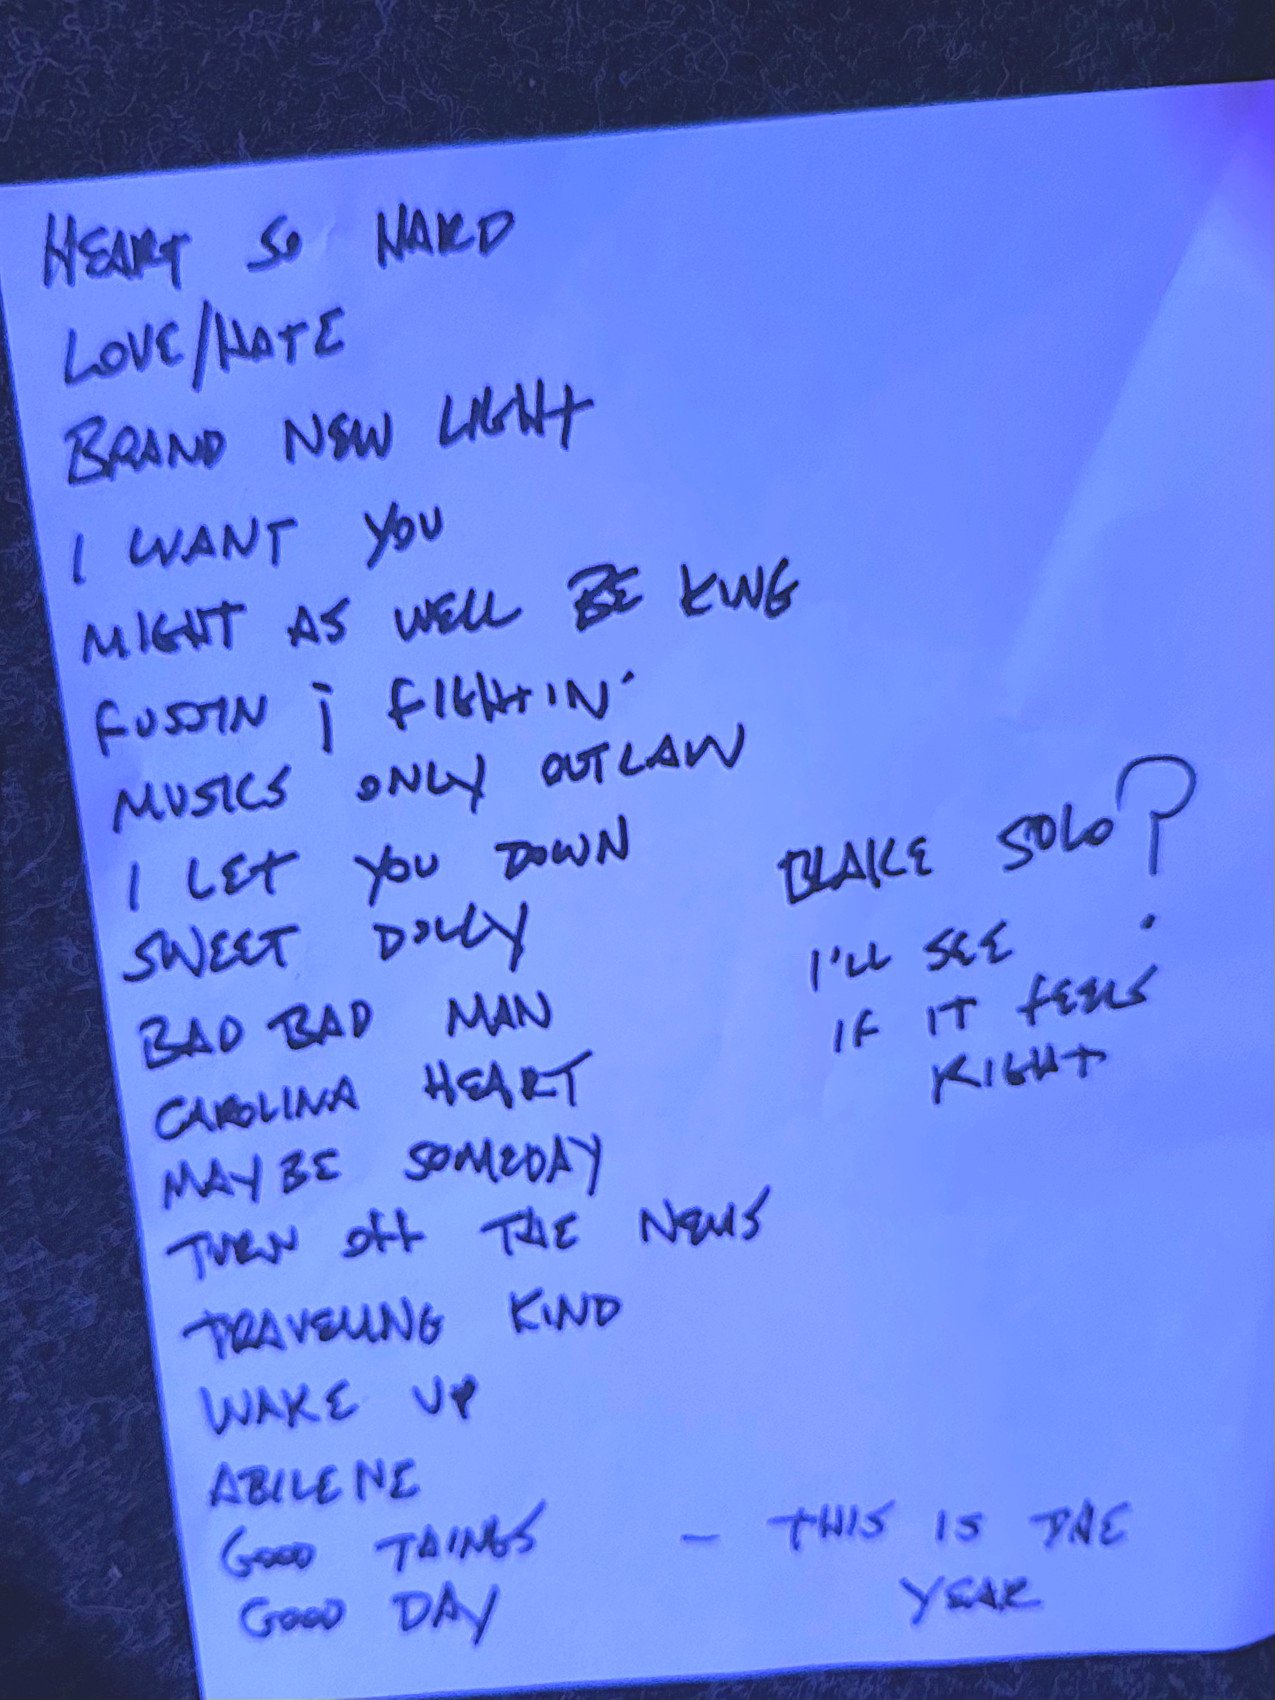 HEART SO HARD
LOVE/HATE
BRAND NEW LIGHT
I WANT YOU
MIGHT AS WELL BE KING
FUSSIN & FIGHTIN'
MUSICS ONLY OUTLAW
I LET YOU DOWN
SWEET DOLLY
BAD BAD MAN
CAROLINA HEART
MAYBE SOMEDAY
TURN OFF THE NEWS
TRAVELING KIND
WAKE UP
ABILENE
GOOD THINGS
GOOD DAY
BLAKE SOLO?
I'LL SEE
IF IT FEELS
RIGHT
- THIS IS THE
YEAR